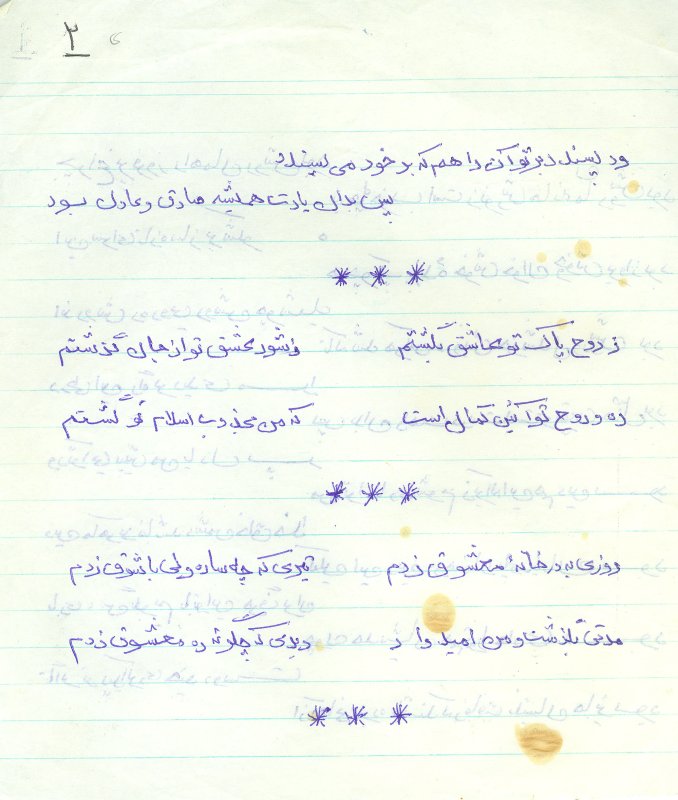 ۲
ور پسند دبر تو آن را هم که بر خود می پسندد
پس بدان یادت همیشه صادق و عادل بود
* * *
ز روح پاک تو عاشق بگشتم ز شور عشق تو از جان گذشتم
ره و روح تو آئین کمال است که من مجذوب اسلام تو گشتم
* * *
روزی به در خانهٔ معشوق زدم تیری که چه ساده ولی با شوق زدم
مدتی بگذشت و من امید وار دیدی که چگونه ره معشوق زدم
* * *